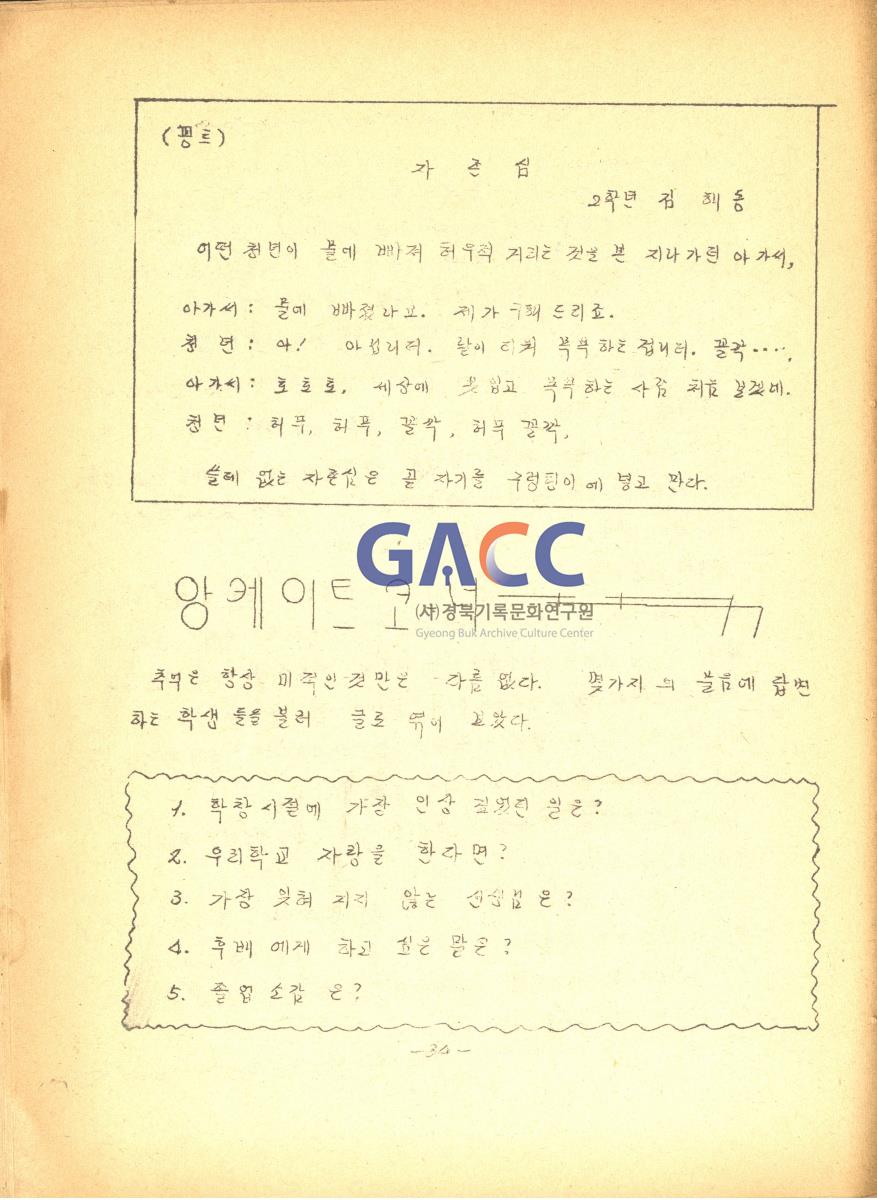 (꽁트)
자 존 심
2학년 김 해 동
어떤 청년이 물에 빠져 허우적 거리는 것을 본 지나가던 아가씨,
아가씨: 물에 빠졌나요. 제가 구해 드리죠.
청 년 : 아! 아닙니다. 날이 더워 목욕하는 겁니다. 꼴깍....,
아가씨: 호호호, 세상에 옷 입고 목욕하는 사람 처음 보겠네.
청 년 : 허푸, 허푸, 꼴깍, 허푸 꼴깍,
쓸데 없는 자존심은 곧 자기를 구렁텅이 에 넣고 만다.
GACC
(사)경북기록문화연구원
Gyeong Buk Archive Culture Center
앙케이트 코너
추억은 항상 미적인 것만은 다름 없다. 몇가지 의 물음에 답변
하는 학생 들을 불러 글로 엮어 보았다.
1. 학창시절에 가장 인상 깊었던 일은?
2. 우리학교 자랑을 한다면?
3. 가장 잊혀 지지 않는 선생님 은?
4. 후배 에게 하고 싶은 말은?
5. 졸업 소감 은?
-34-